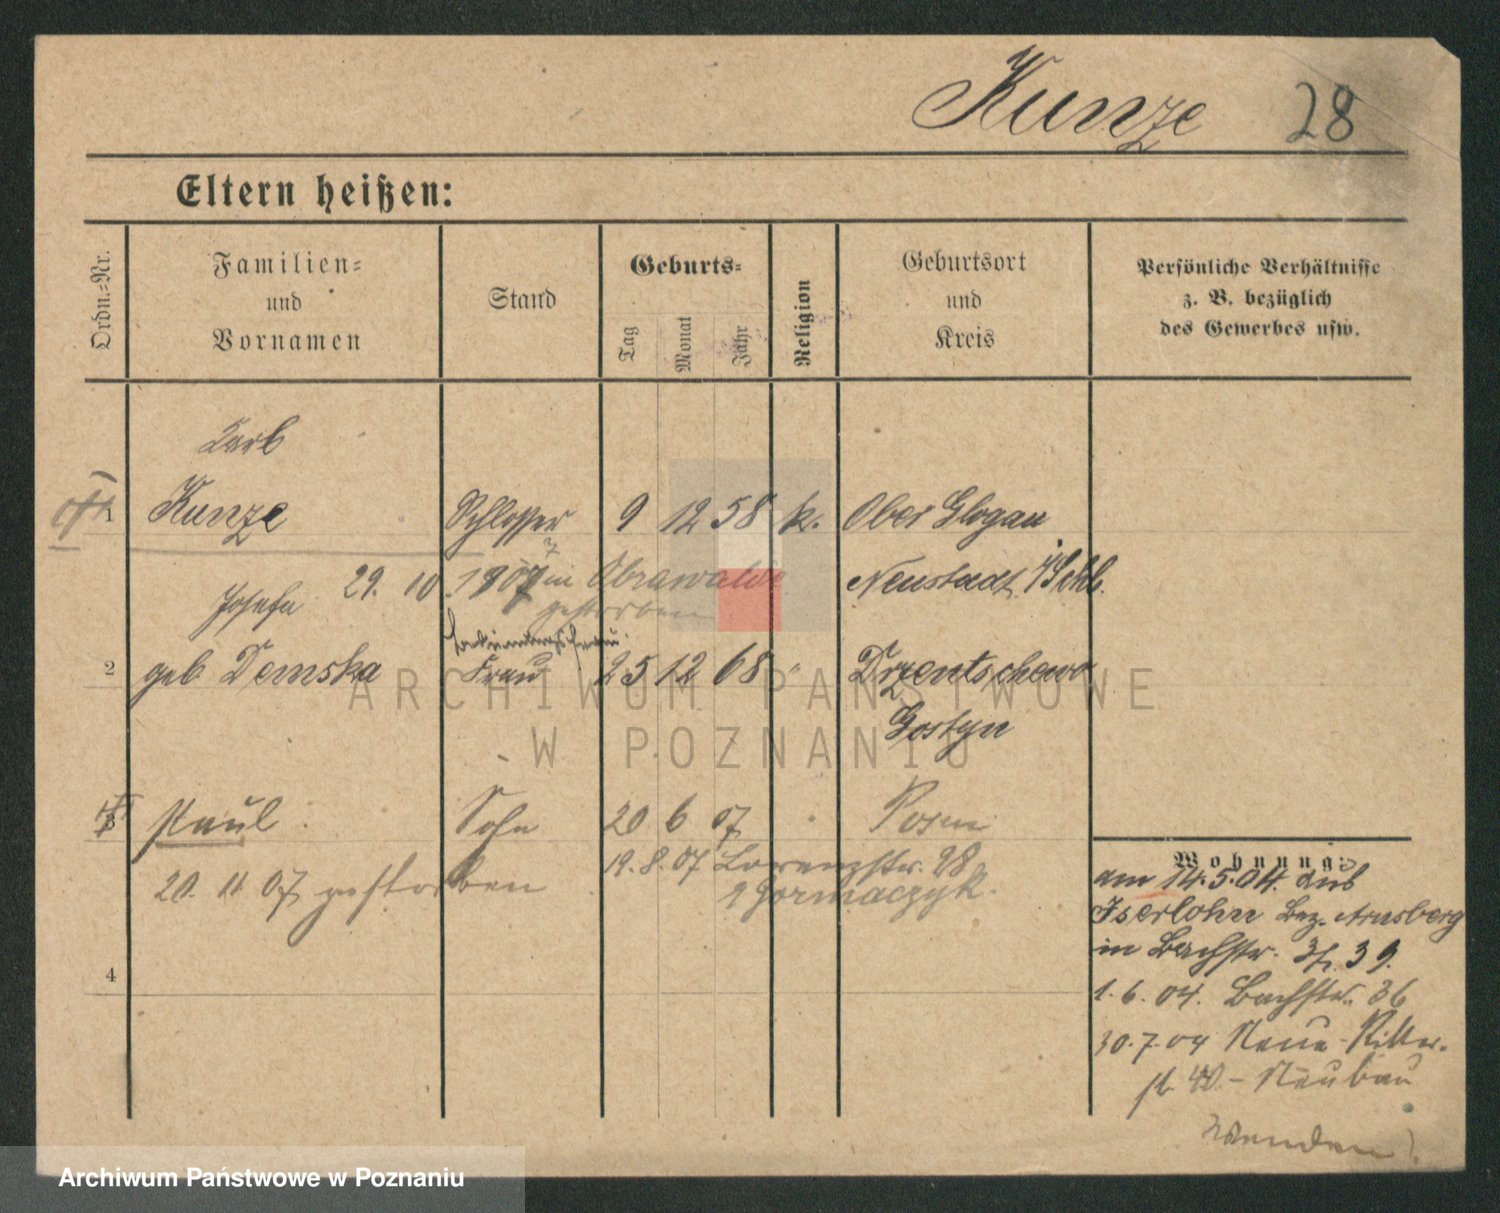 Kunze 28
Eltern heißen:
Ordn.-Nr.
Familien-
und
Vornamen
Stand
Geburts-
Tag
Monat
Jahr
Religion
Geburtsort
und
Kreis
Persönliche Verhältnisse
z. B. bezüglich
des Gewerbes usw.
1 Kunze Schlosser 9 12 58 k. Ober Glogau
29. 10. 1907 in Obrawalde Neustadt
gestorben
Josefa
2 geb Demska Frau 25 12 68 " Drzentschewo
Gostyn
3 Paul Sohn 20 6 07 " Posen
19. 8. 07 Lorenzstr. 28
20. 11. 07 gestorben
4
Wohnung:
am 14.5.04. aus
Iserlohn Bez. Arnsberg
in Bachstr. 39.
1. 6. 04. Bachstr. 36
30. 7. 04 Neue Ritter-
st. 40. - Neubau
Wenden!
ARCHIWUM PAŃSTWOWE
W POZNANIU
Archiwum Państwowe w Poznaniu